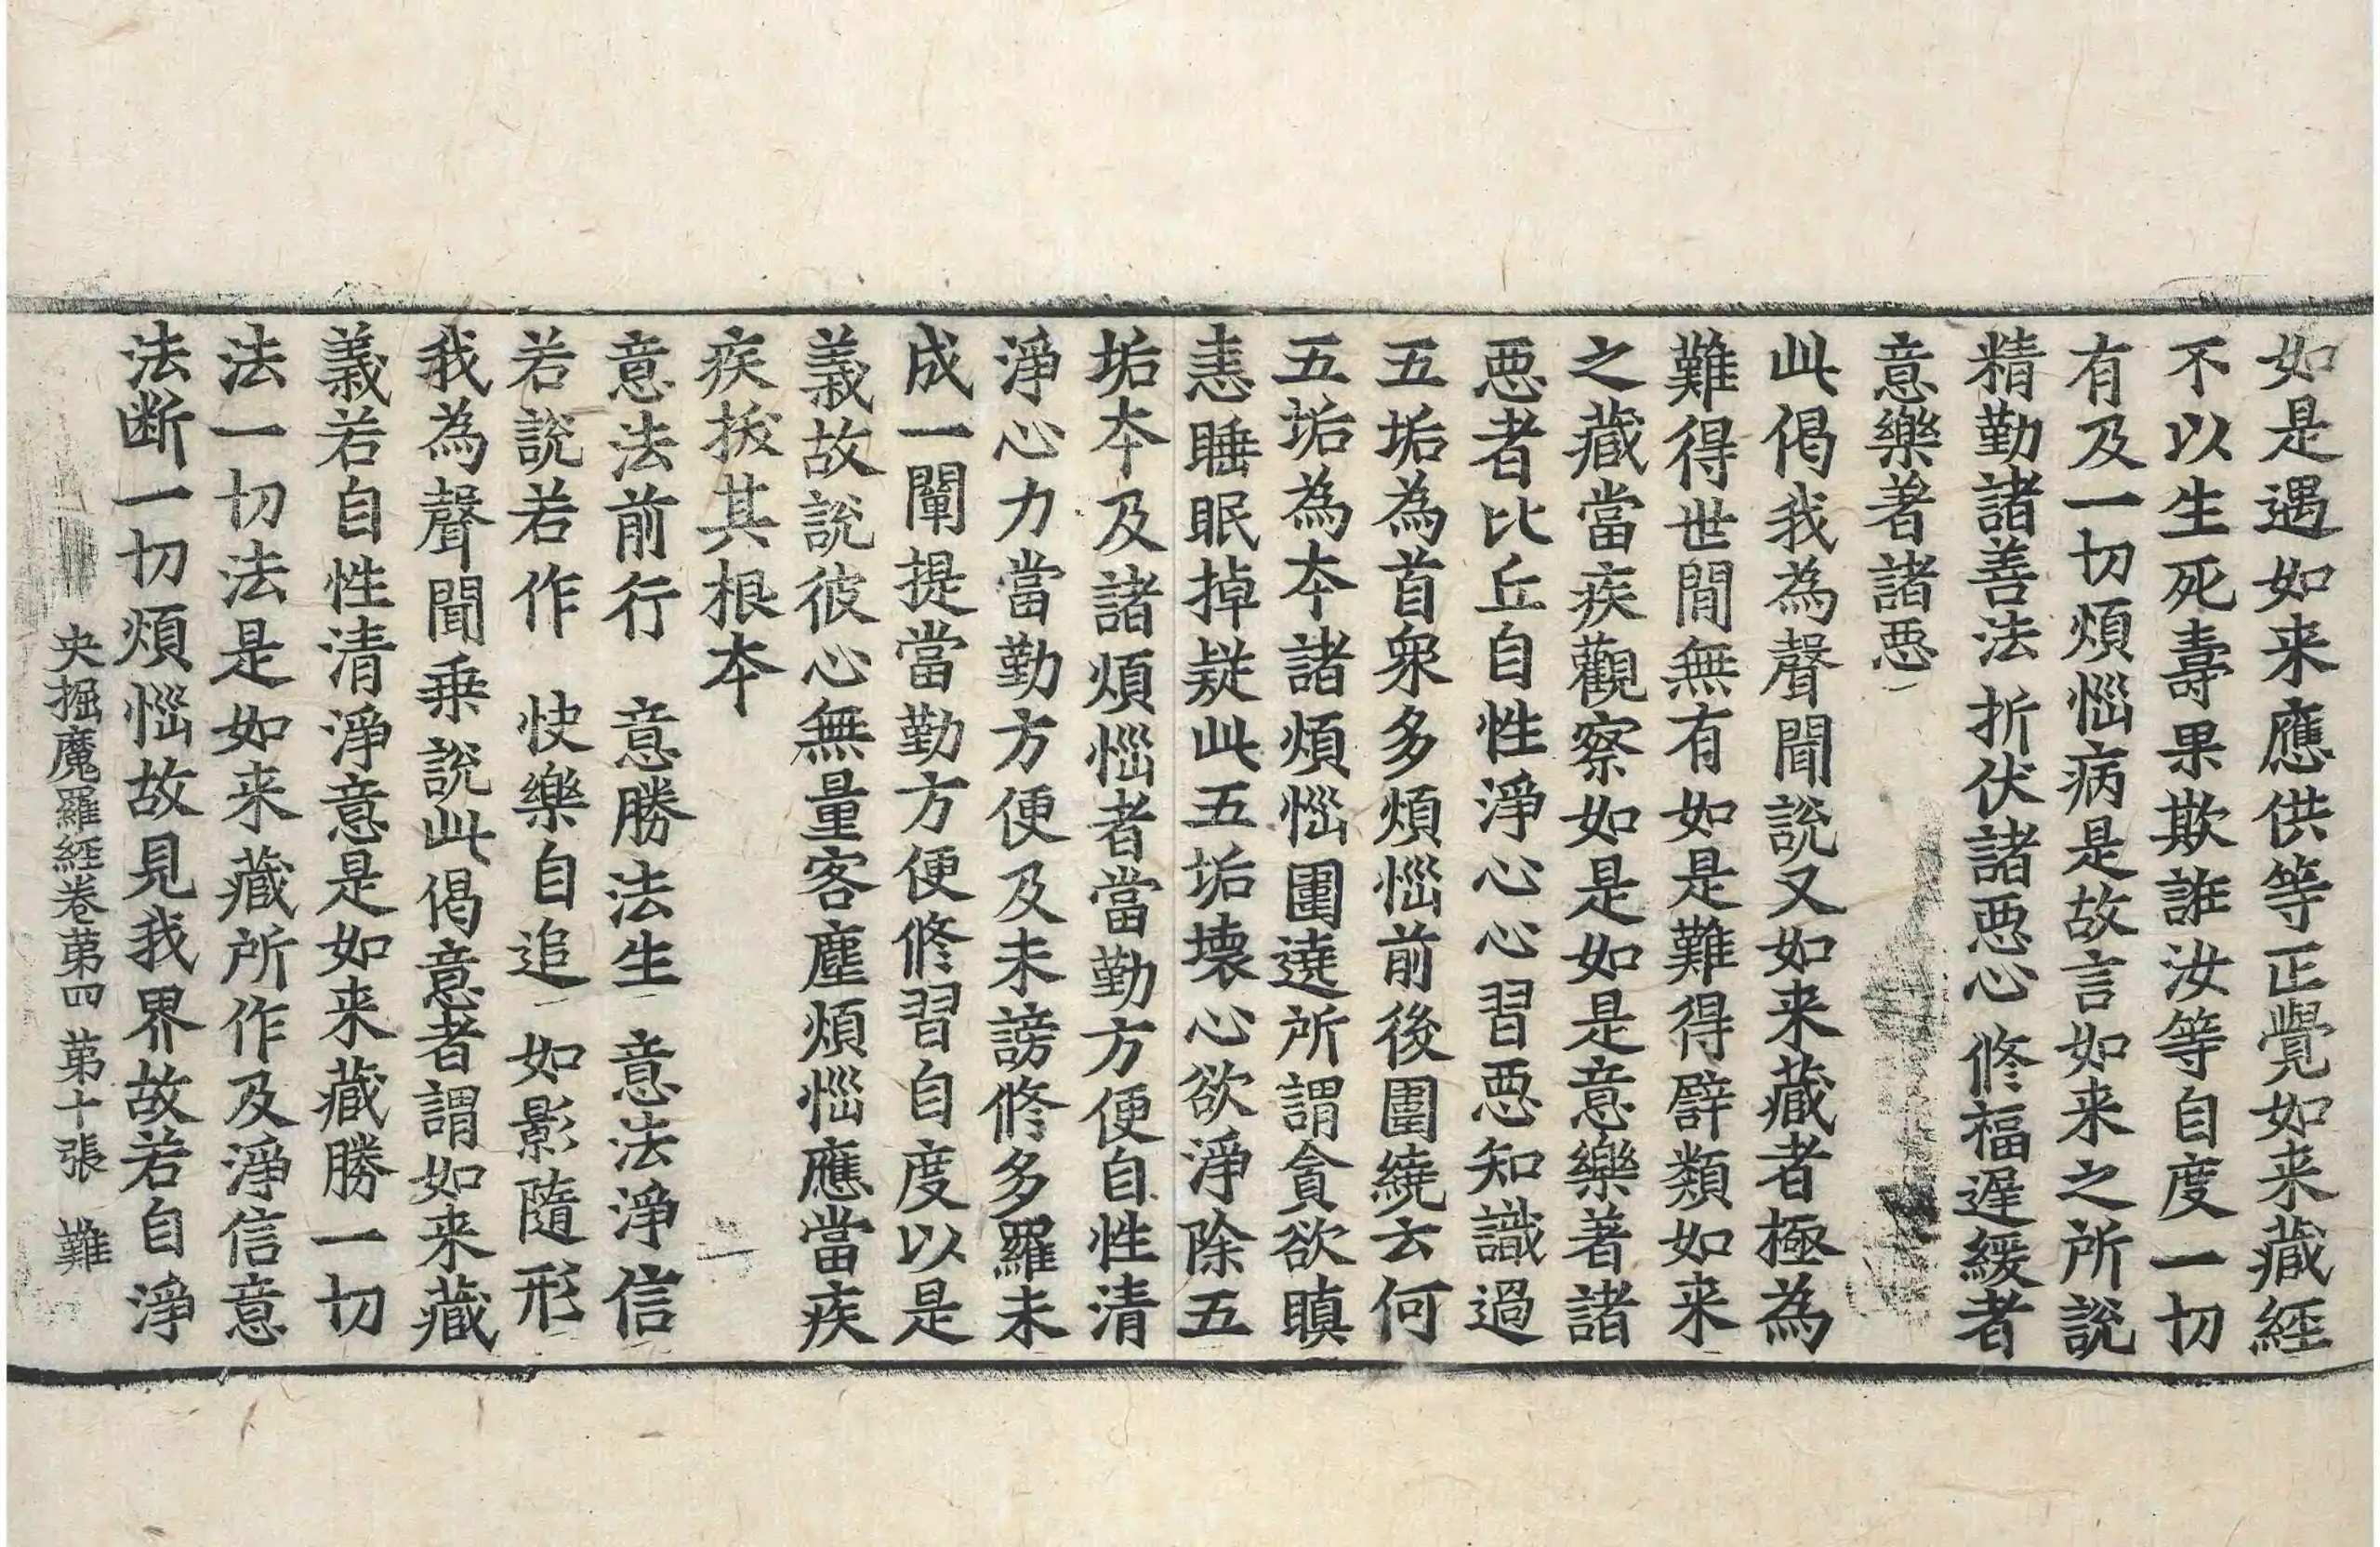 如是遇如来應供等正覺如来藏經
不以生死壽果欺誰汝等自度一切
有及一切煩惱病是故言如来之所說
精勤諸善法 折伏諸惡心 修福遅緩者
意樂著諸惡
此偈我為聲聞說又如来藏者極為
難得世間無有如是難得譬類如来
之藏當疾觀察如是如是意樂著諸
惡者比丘自性淨心心習惡知識過
五垢為首衆多煩惱前後圍繞云何
五垢為本諸煩惱圍遶所謂貪欲瞋
恚睡眠掉疑此五垢壊心欲淨除五
垢本及諸煩惱者當勤方便自性清
淨心力當勤方便及未謗修多羅未
成一闡提當勤方便修習自度以是
義故說彼心無量客塵煩惱應當疾
疾拔其根本
意法前行 意勝法生 意法淨信
若說若作 快樂自追 如影隨形
我為聲聞乗說此偈意者謂如来藏
義若自性清淨意是如来藏勝一切
法一切法是如来藏所作及淨信意
法断一切煩惱故見我界故若自淨
央掘魔羅經卷第四 第十張 難